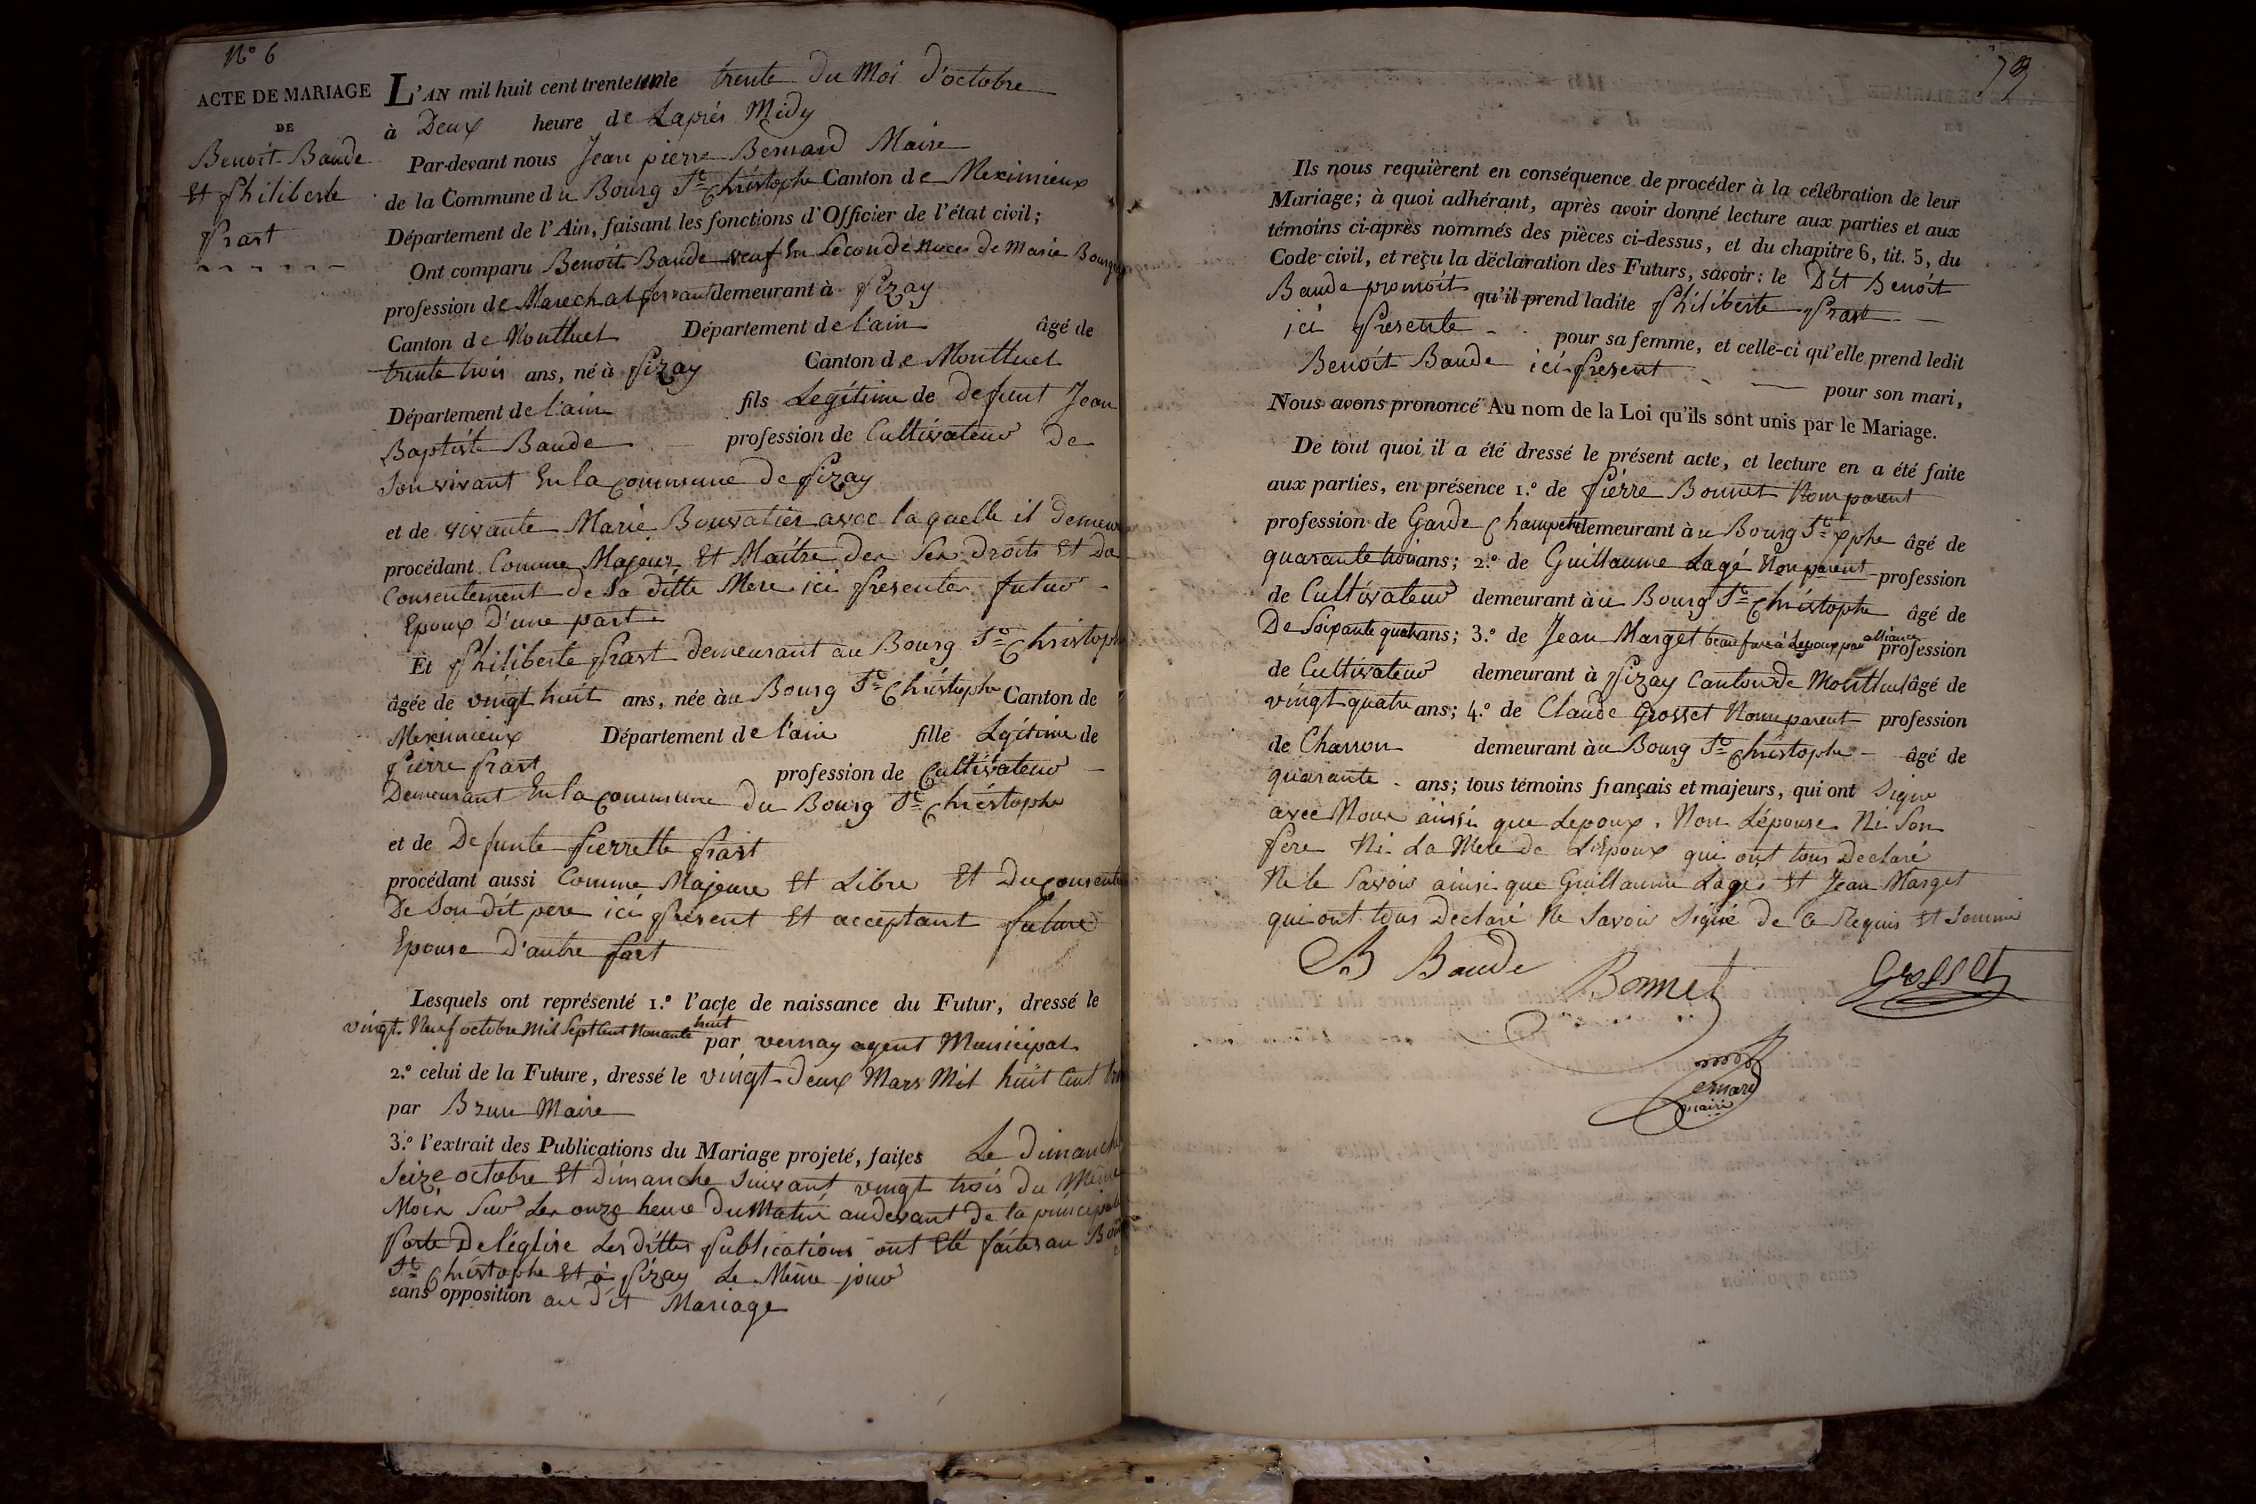 N° 6
ACTE DE MARIAGE
DE
Benoit Baude
Et Philiberte
Prast
L'AN mil huit cent trente un le trente du Moi d'octobre
à Deux heure de Laprés Midy
Par-devant nous Jean pierre Bernard Maire
de la Commune du Bourg St Christophe Canton de Meximieux
Département de l'Ain, faisant les fonctions d'Officier de l'état civil;
Ont comparu Benoit Baude veuf En Seconde Noces de Marie
profession de Marechal ferrant demeurant à Pizay
Canton de Montluel Département de l'ain âgé de
trente trois ans, né à Pizay Canton de Montluel
Département de l'ain fils Legitime de Defunt Jean
Baptiste Baude profession de Cultivateur De
Son vivant En la Commune de Pizay
et de vivante Marie Bouvatier avec laquelle il
procédant Comme Majeur Et Maitre der Ser droits Et Du
Consentement de Sa ditte Mere ici Presente futur
Epoux D'une part
Et Philiberte Prast demeurant au Bourg St Christophe
âgée de vingt huit ans, née au Bourg St Christophe Canton de
Meximieux Département de l'ain fille Légitime de
Pierre Prast profession de Cultivateur
Demeurant En la Commune du Bourg St Christophe
et de Defunte Pierrette Prast
procédant aussi Comme Majeure Et Libre Et Du
De Son dit pere ici Present Et acceptant future
Epouse D'autre Part
Lesquels ont représenté 1.° l'acte de naissance du Futur, dressé le
vingt Neuf octobre Mil Sept Cent Nonante huit par vernay agent Municipal
2.° celui de la Future, dressé le vingt-deux Mars Mil huit Cent
par Brun Maire
3.° l'extrait des Publications du Mariage projeté, faites Le Dimanche
Seize octobre Et Dimanche Suivant vingt trois du Même
Mois Sur Les onze heure Du Matin audevant de la principale
Porte De l'église Les dittes Publications ont Eté faites au
St Christophe Et à Pizay Le Même jour
sans opposition au dit Mariage
Ils nous requièrent en conséquence de procéder à la célébration de leur
Mariage; à quoi adhérant, après avoir donné lecture aux parties et aux
témoins ci-après nommés des pièces ci-dessus, et du chapitre 6, tit. 5, du
Code civil, et reçu la déclaration des Futurs, savoir: le Dit Benoit
Baude promoit qu'il prend ladite Philiberte Prast
ici Presente pour sa femme, et celle-ci qu'elle prend ledit
Benoit Baude ici Present pour son mari,
Nous avons prononcé Au nom de la Loi qu'ils sont unis par le Mariage.
De tout quoi il a été dressé le présent acte, et lecture en a été faite
aux parties, en présence 1.° de Pierre Bonnet Non parent
profession de Garde Champetre demeurant au Bourg St Xphe âgé de
quarante trois ans; 2.° de Guillaume Lagé Non parent profession
de Cultivateur demeurant au Bourg St Christophe âgé de
De Soixante quatre ans; 3.° de Jean Marget beau frere à Lepoux par alliance profession
de Cultivateur demeurant à Pizay Canton de Montluel âgé de
vingt quatre ans; 4.° de Claude Grosset Non parent profession
de Charron demeurant au Bourg St Christophe âgé de
quarante ans; tous témoins français et majeurs, qui ont Signé
avec Nous ainsi que Lepoux. Non Lépouse Ni Son
Pere Ni La Mere de L'Epoux qui ont tous Declaré
Ne le Savoir ainsi que Guillaume Lagé Et Jean Marget
qui ont tous Declaré Ne Savoir Signé de ce Requis Et Sommé
B Baude
Bonnet
Grosset
Bernard
maire